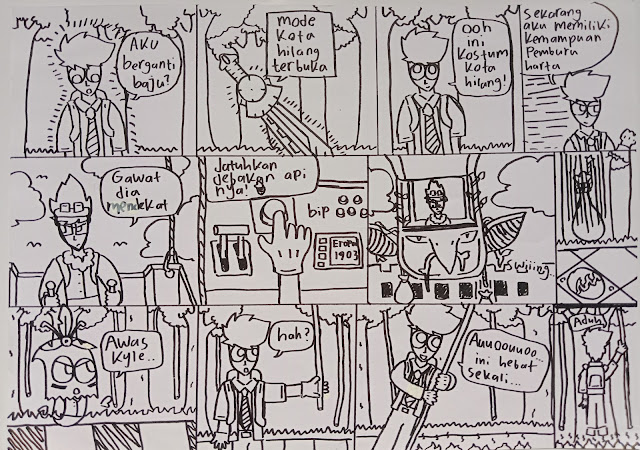 AKU
berganti
baju?
mode
kota
hilang
terbuka
ooh
ini
kostum
kota
hilang!
sekarang
aku memiliki
kemampuan
Pemburu
harta
Gawat
dia
mendekat
Jatuhkan
jebakan api
nya!
biP
Eropa
1903
swiiing...
Awas
Kyle..
hah?
Auuoouuoo...
ini hebat
sekali...
Aduh